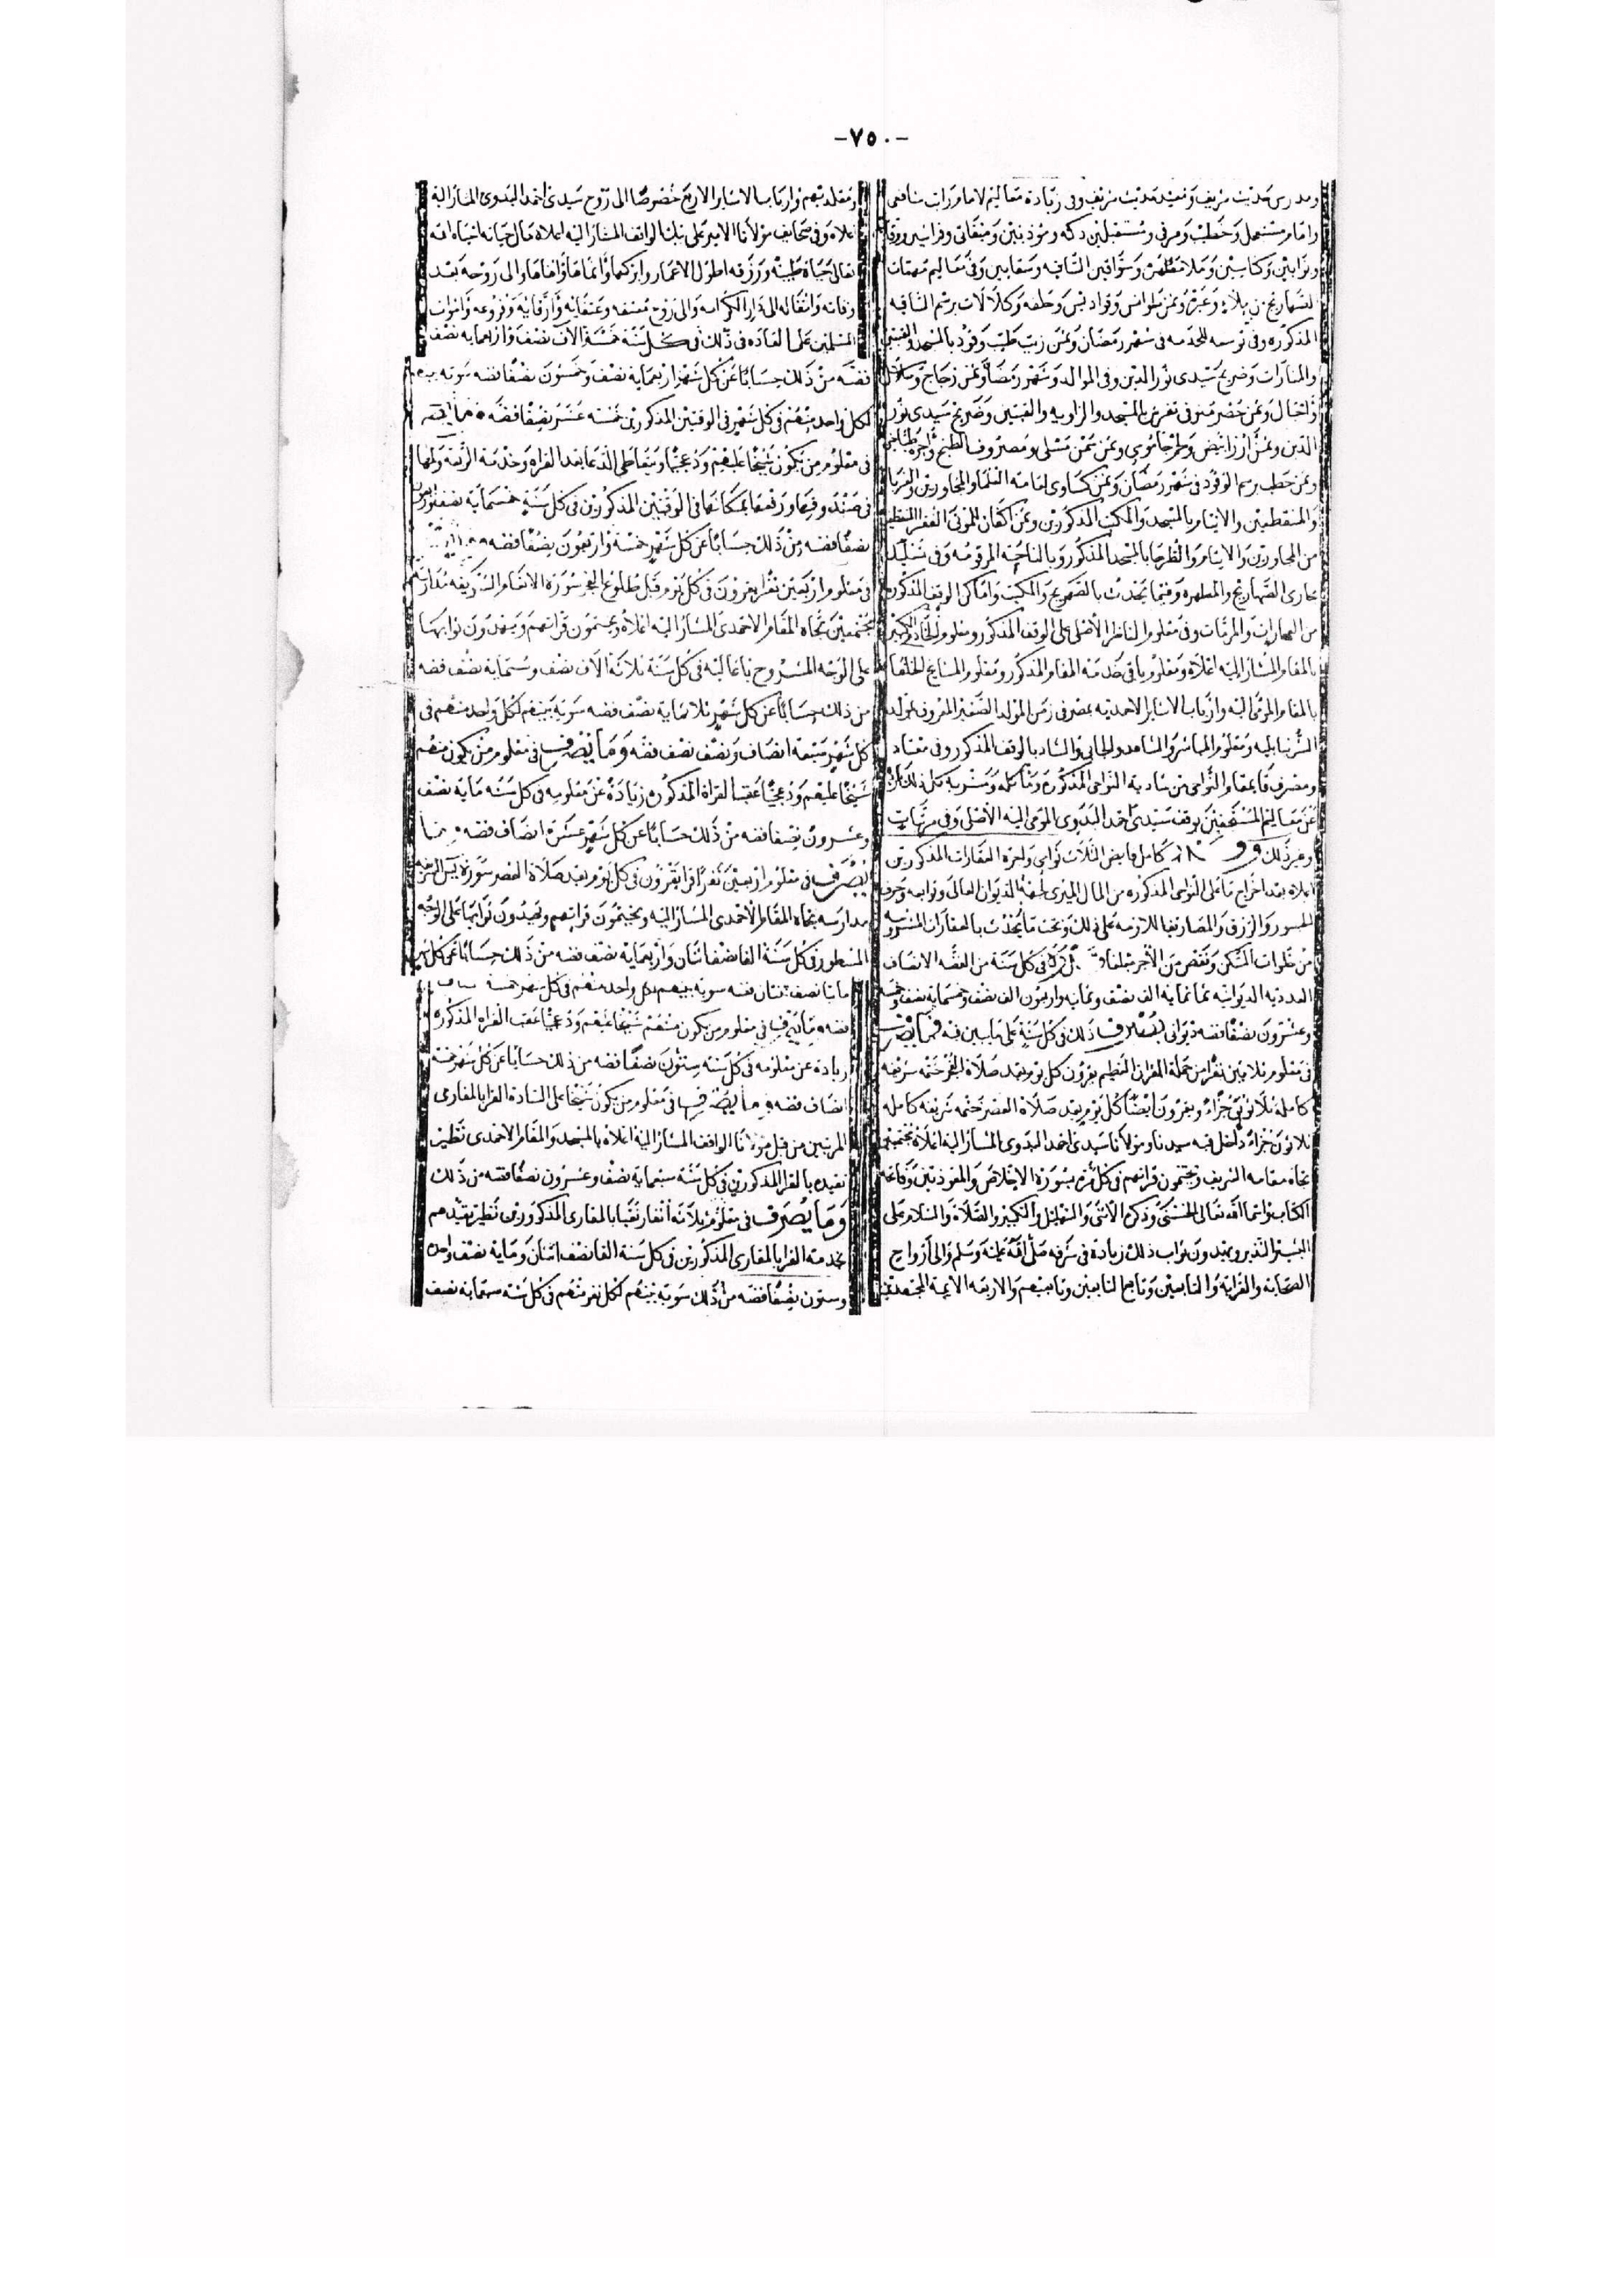 -٧٥٠-
ومدرس حديث شريف ومعيد حديث شريف وفى زيادة معاليم لامام راتب شافعى
وامام مستعمل وخطيب ومرقى ومستقبلين دكه ومؤذنين وميقاتى وفراشين ووقادين
وبوابين وكناسين وملا مطهرة وسواقين الساقيه وسقايين وفى معاليم مهمات
المذكوره وفى توسعه للخدمه فى شهر رمضان وثمن زيت طيب وقود بالمسجد والقبتين
والمنارات وضريح سيدى نور الدين وفى الموالد وشهر رمضان وثمن زجاج وسلاسل
واحبال وثمن حصر منوفى تفرش بالمسجد والزاويه والقبتين وضريح سيدى نور
الدين وثمن ارز ابيض ولحم جاموسى وثمن سمن مسلى ومصروف الطبخ واجرة طباخين
وثمن حطب برسم الوقود فى شهر رمضان وثمن كساوى لقامة العلما والمجاورين والقربا
والمنقطعين والايتام بالمسجد والمكتب المذكورين وثمن اكفان للموتى الفقرا المنقطعين
من المجاورين والايتام والطرحا بالمسجد المذكور وبالناحيه المرقومه وفى تسليك
مجارى الصهاريج والمطهره وفيما يحدث بالصهريج والمكتب واماكن الوقف المذكوره
من العمارات والمرمات وفى معلوم الناظر الأصلى على الوقف المذكور ومعلوم الخادم الكبير
بالمقام المشار اليه اعلاه ومعلوم باقى خدمة المقام المذكور ومعلوم المشايخ الخلفا
بالمقام المومى اليه وارباب الاشاير الاحمديه بمصر فى زمن المولد الصغير المعروف بمولد
الشرنبابليه ومعلوم المباشر والشاهد والجابى والشاد بالوقف المذكور وفى معتاد
ومصرف قايمقام النواحى من شادية النواحى المذكوره ومأكله ومشربه كل ذلك زيادة
عن معاليم المستحقين بوقف سيدى احمد البدوى المومى اليه الأصلى وفى مرتبات
وغير ذلك كامل فايض الثلاث نواحى واجرة العقارات المذكورين
اعلاه بعد اخراج ما على النواحى المذكوره من المال الميرى لجهة الديوان العالى وتوابعه وجرف
الجسور والرزق والمصاريف اللازمه على ذلك وتحت ما يحدث بالعقارات المشروحه
من خلوات السكن ونقص من الأجر فى كل سنة من الفضه الانصاف
العدديه الديوانيه ثمانمايه الف نصف وثمانيه واربعون الف نصف وخمسمايه نصف وخمسه
وعشرون نصفا فضه ديوانى يصرف ذلك فى كل سنة على ما يبين فيه فما يصرف
فى معلوم ثلاثين نفرا من حملة القران العظيم يقرون كل يوم بعد صلاة الفجر ختمه شريفه
كامله ثلاثون جزاء ويقرون ايضا كل يوم بعد صلاة العصر ختمه شريفه كامله
ثلاثون جزاء داخل قبه سيدنا ومولانا سيدى احمد البدوى المشار اليه اعلاه مجتمعين
تجاه مقامه الشريف ويختمون قراتهم فى كل مرة بسورة الاخلاص والمعوذتين وفاتحة
الكتاب واسما الله تعالى الحسنى وذكره الأسنى والتهليل والتكبير والصلاة والسلام على
البشير النذير ويهدون ثواب ذلك زيادة فى شرفه صلى الله عليه وسلم والى ازواج
الصحابه والقرابه والتابعين وتابع التابعين وتابعيهم والاربعه الايمه المجتهدين
ومقلديهم وارباب الاشاير الاربع خصوصا الى روح سيدى احمد البدوى المشار اليه
اعلاه وفى صحايف مولانا الامير على بيك الواقف المشار اليه اعلاه حال حياته احياه الله
تعالى حياة طيبة ورزقه اطول الاعمار وابركها والى روحه بعد
وفاته وانتقاله الى دار الكرامه والى روح معتقه وعتقايه وارقايه وفروعه واموات
المسلمين على العاده فى ذلك فى كل سنة خمسة الاف نصف واربعمايه نصف
فضه من ذلك حسابا عن كل شهر اربعماية نصف وخمسون نصفا فضه سويه بينهم
لكل واحد منهم فى كل شهر فى الوقتين المذكورين خمسه عشر نصفا فضه
فى معلوم من يكون شيخا عليهم ودعجيا ويتعاطى الدعا بعد القراه وخدمة الربعه ولمها
فى صندوقها ورفعها بمكانها فى الوقتين المذكورين فى كل سنة خمسماية نصف واربعون
نصفا فضه من ذلك حسابا عن كل شهر خمسه واربعون نصفا فضه
فى معلوم اربعين نفرا يقرون فى كل يوم قبل طلوع الفجر سورة الانعام الشريفه مدارسة
مجتمعين تجاه المقام الاحمدى المشار اليه اعلاه ويختمون قراتهم ويهدون ثوابها
على الوجه المشروح باعاليه فى كل سنة ثلاثة الاف نصف وستمايه نصف فضه
من ذلك حسابا عن كل شهر ثلاثماية نصف فضه سويه بينهم لكل واحد منهم فى
كل شهر سبعة انصاف ونصف نصف فضه وما يصرف فى معلوم من يكون منهم
شيخا عليهم ودعجيا عقب القراة المذكوره زيادة عن معلومه فى كل سنه ماية نصف
وعشرون نصفا فضه من ذلك حسابا عن كل شهر عشرة انصاف فضه وما
يصرف فى معلوم اربعين نفرا قرا يقرون فى كل يوم بعد صلاة العصر سورة يس الشريفه
مدارسه تجاه المقام الاحمدى المشار اليه ويختمون قراتهم ويهدون ثوابها على الوجه
المسطور فى كل سنة الفا نصف اثنان واربعماية نصف فضه من ذلك حسابا عن كل شهر
مايتا نصف اثنان فضه سويه بينهم لكل واحد منهم فى كل شهر خمسه
فضه وما يصرف فى معلوم من يكون منهم شيخا عليهم ودعجيا عقب القراه المذكوره
زيادة عن معلومه فى كل سنه ستون نصفا فضه من ذلك حسابا عن كل شهر خمسة
انصاف فضه وما يصرف فى معلوم من يكون شيخا على السادة القرا بالمقارى
المرتبين من قبل مولانا الواقف المشار اليه اعلاه بالمسجد والمقام الاحمدى نظير
تقيده بالقرا المذكورين فى كل سنة سبعماية نصف وعشرون نصفا فضه من ذلك
وما يصرف فى معلوم ثلاثة أنفار نقبا بالمقارى المذكورين نظير تقيدهم
بخدمة القرا بالمقارى المذكورين فى كل سنة الفا نصف اثنان وماية نصف واحده
وستون نصفا فضه من ذلك سوية بينهم لكل نفر منهم فى كل سنة سبعماية نصف